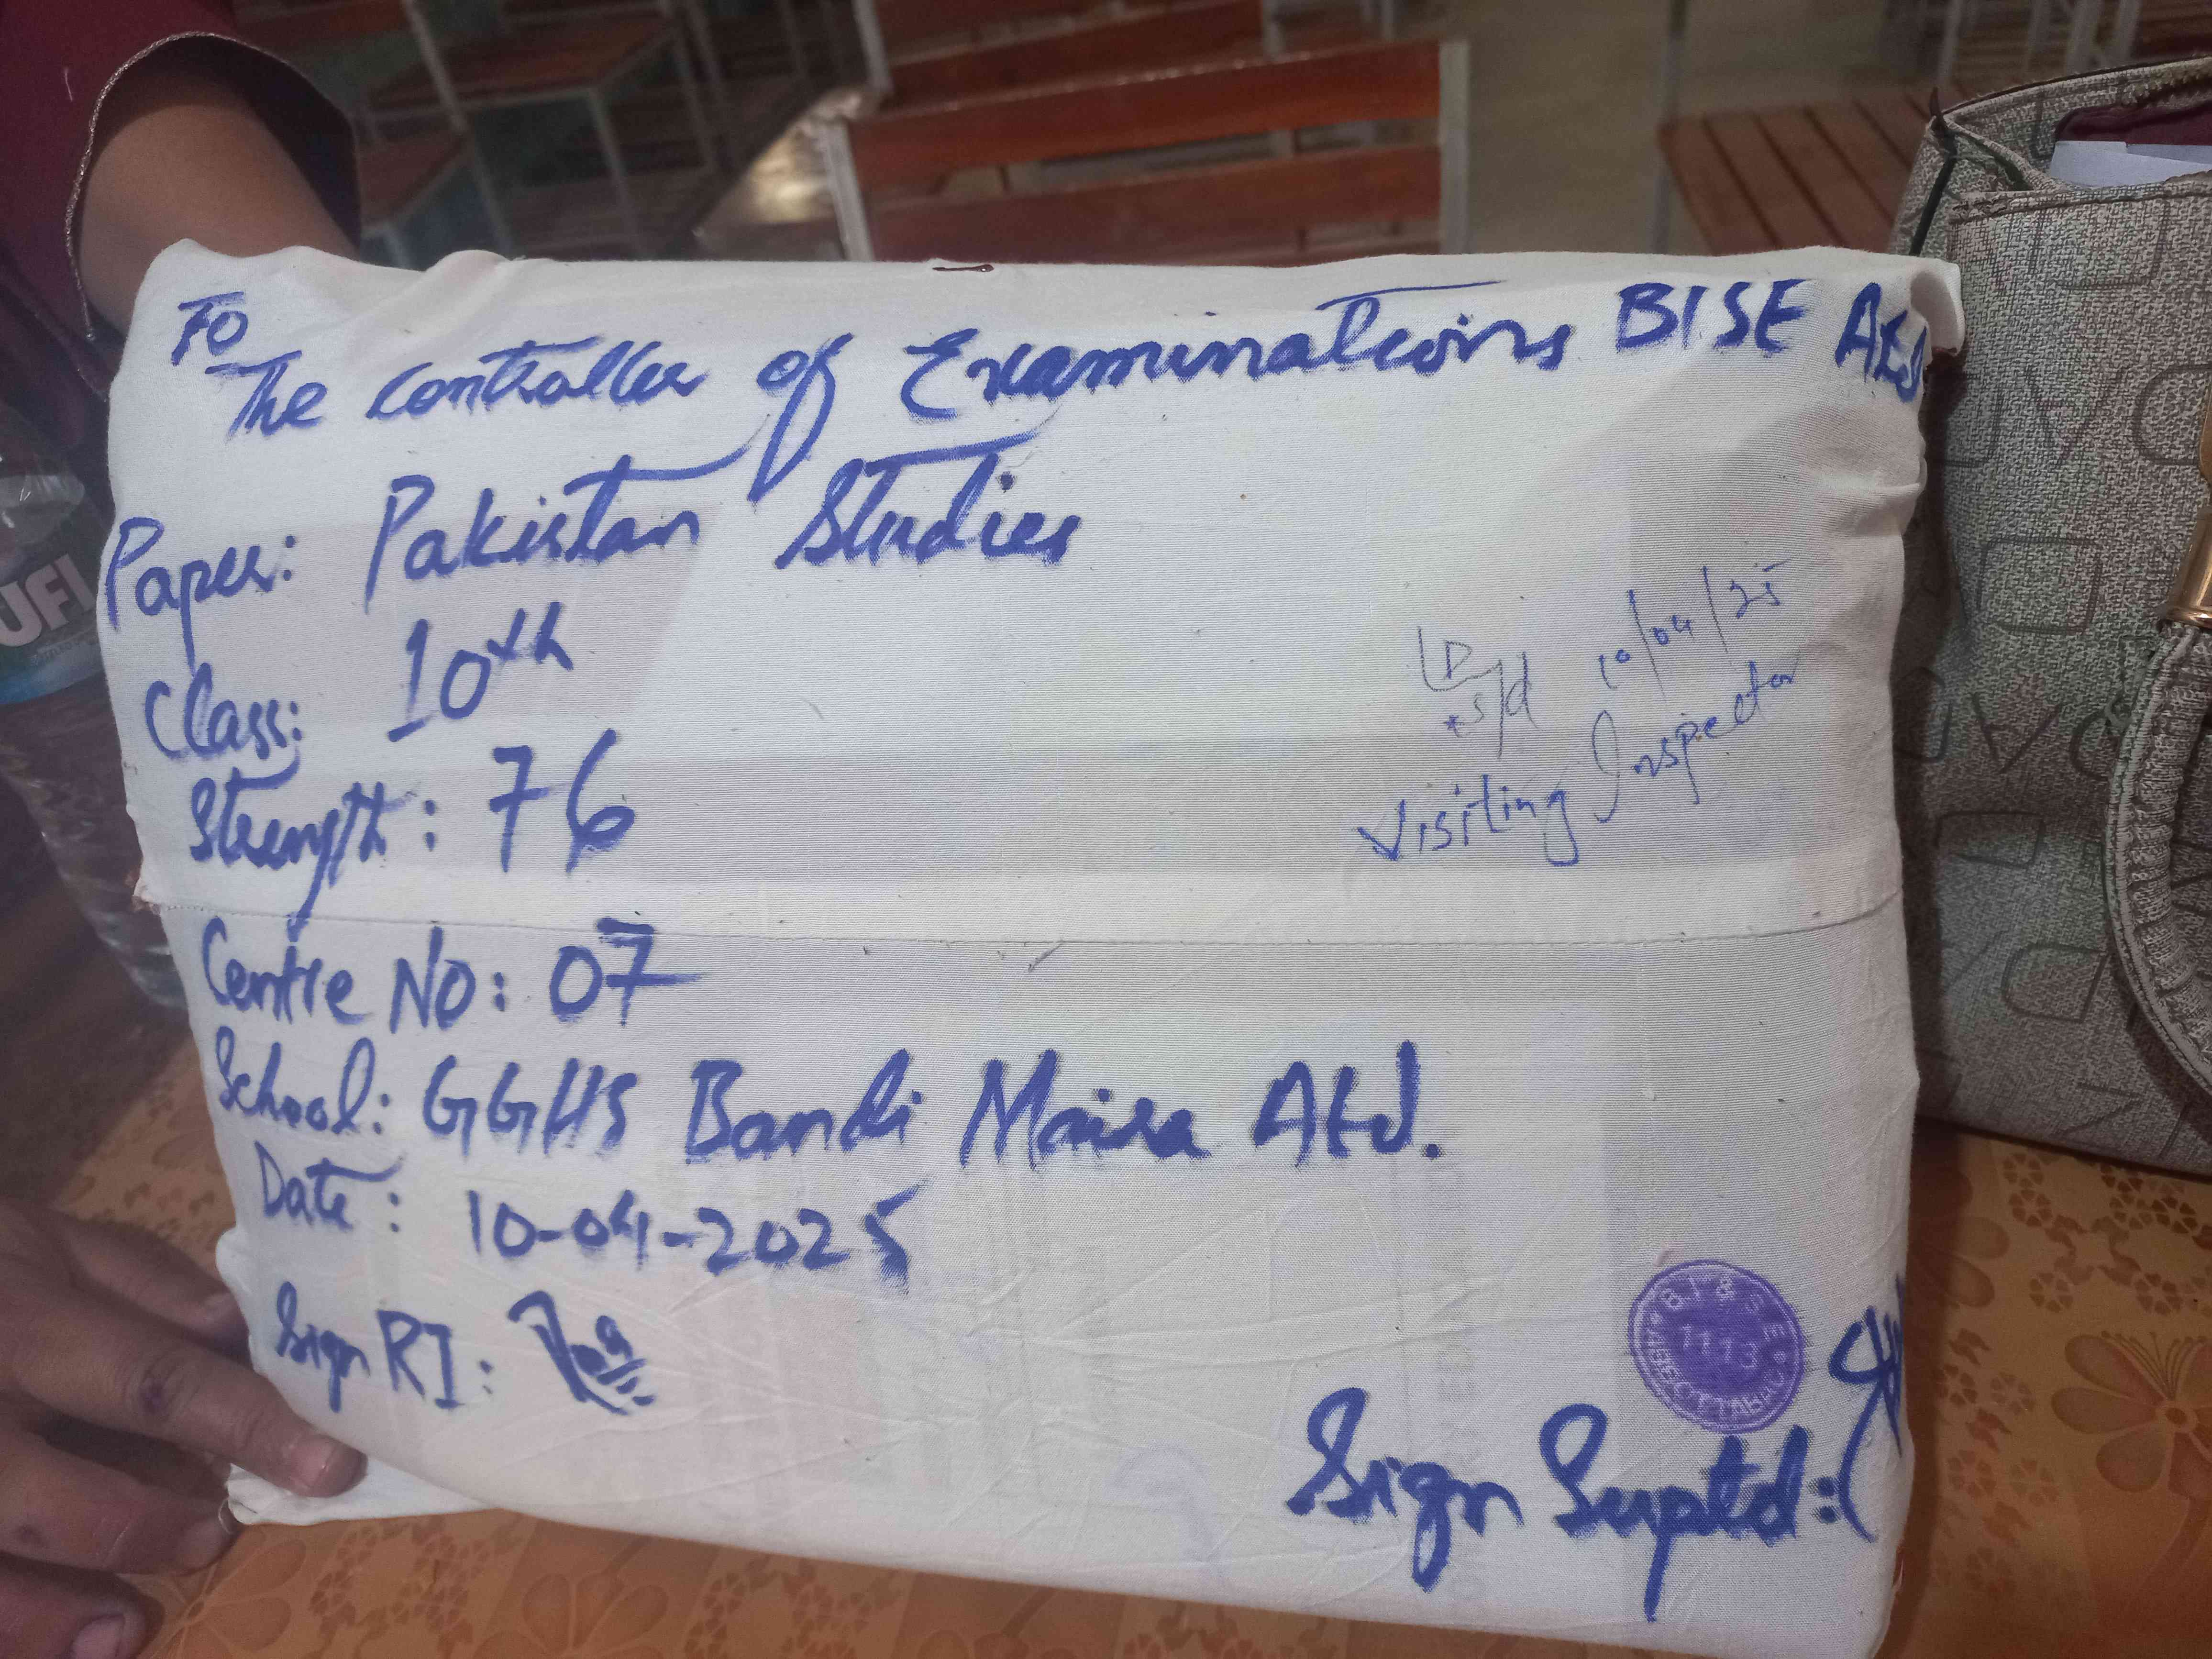 To
The Controller of Examinations BISE Atd
Paper: Pakistan Studies
Class: 10th
Strength: 76
s/d 10/04/25
Visiting Inspector
Centre No: 07
School: GGHS Bandi Maira Atd.
Date: 10-04-2025
Sign RI:
B.I & S.E
1113
ABBOTTABAD
Sign Suptd: